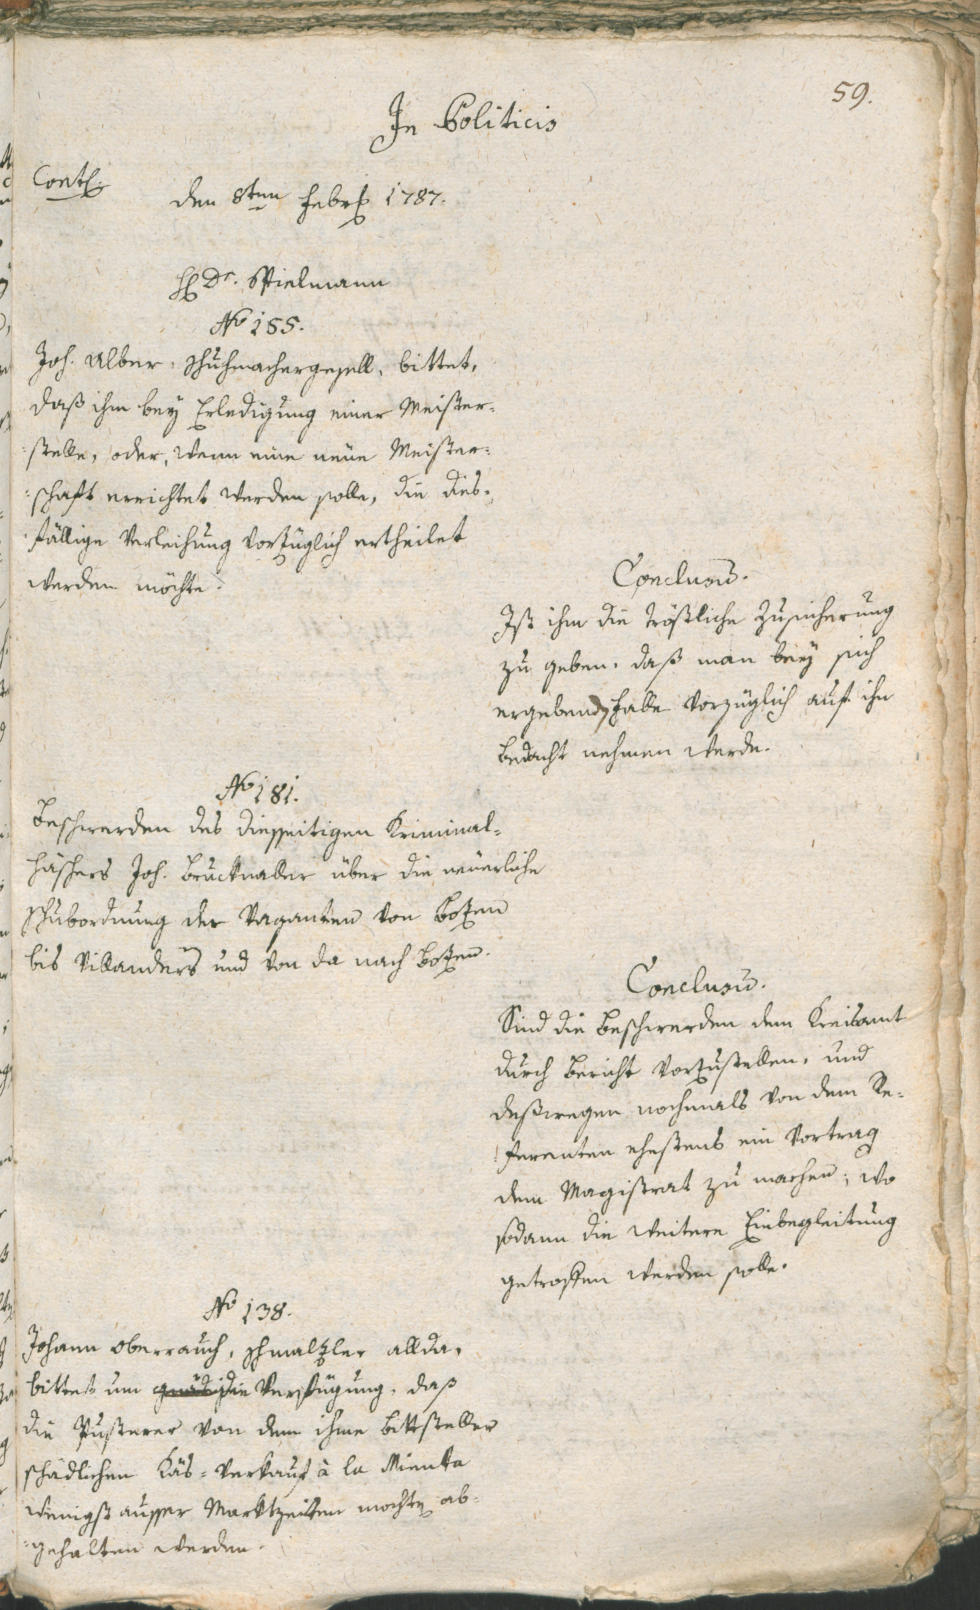 59.
In Politicis
Cont.
den 8ten Febr. 1787.
H. Dr. Spielmann
No 155.
Joh. Alber, Schuhmachergesell, bittet,
daß ihm bey Erledigung einer Meister=
stelle, oder, wenn eine neüe Meister=
schaft errichtet werden solle, die dies=
fällige Verleihung vorzüglich ertheilet
werden möchte.
Conclusũ.
Ist ihm die tröstliche Zusicherung
zu geben, daß man bey sich
ergebend. Falle vorzüglich auf ihn
bedacht nehmen werde.
No 181.
Beschwerden des diesseitigen Kriminal=
häschers Joh. Brucknaller über die neüerliche
Schubordnung der Vaganten von Botzen
bis Villanders und von da nach Botzen.
Conclusũ.
Sind die Beschwerden dem Kreisamt
durch Bericht vorzustellen, und
deßwegen nochmals von dem Re=
ferenten ehestens ein Vortrag
dem Magistrat zu machen; wo
sodann die weitere Einbegleitung
getroffen werden solle.
No 138.
Johann Oberrauch, Schmaltzler allda,
bittet um die Verfügung, daß
die Pusterer von dem ihme Bittsteller
schädlichen Käs=Verkauf à la Minuta
wenigst ausser Marktzeiten möchtē ab=
gehalten werden.